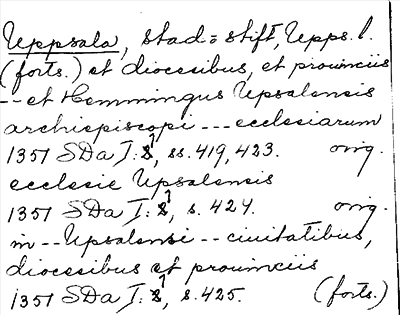 Uppsala, stad = stift, Upps. l.
(forts.) et diocesibus, et prouinciis
-- et Hemmingus Upsalensis
archiepiscopi --- ecclesiarum
1351 SDa I: 1, ss. 419, 423. orig.
ecclesie Upsalensis
1351 SDa I: 1, s. 424. orig.
in -- Upsalensi -- ciuitatibus,
diocesibus et prouinciis
1351 SDa I: 1, s. 425. (forts.)